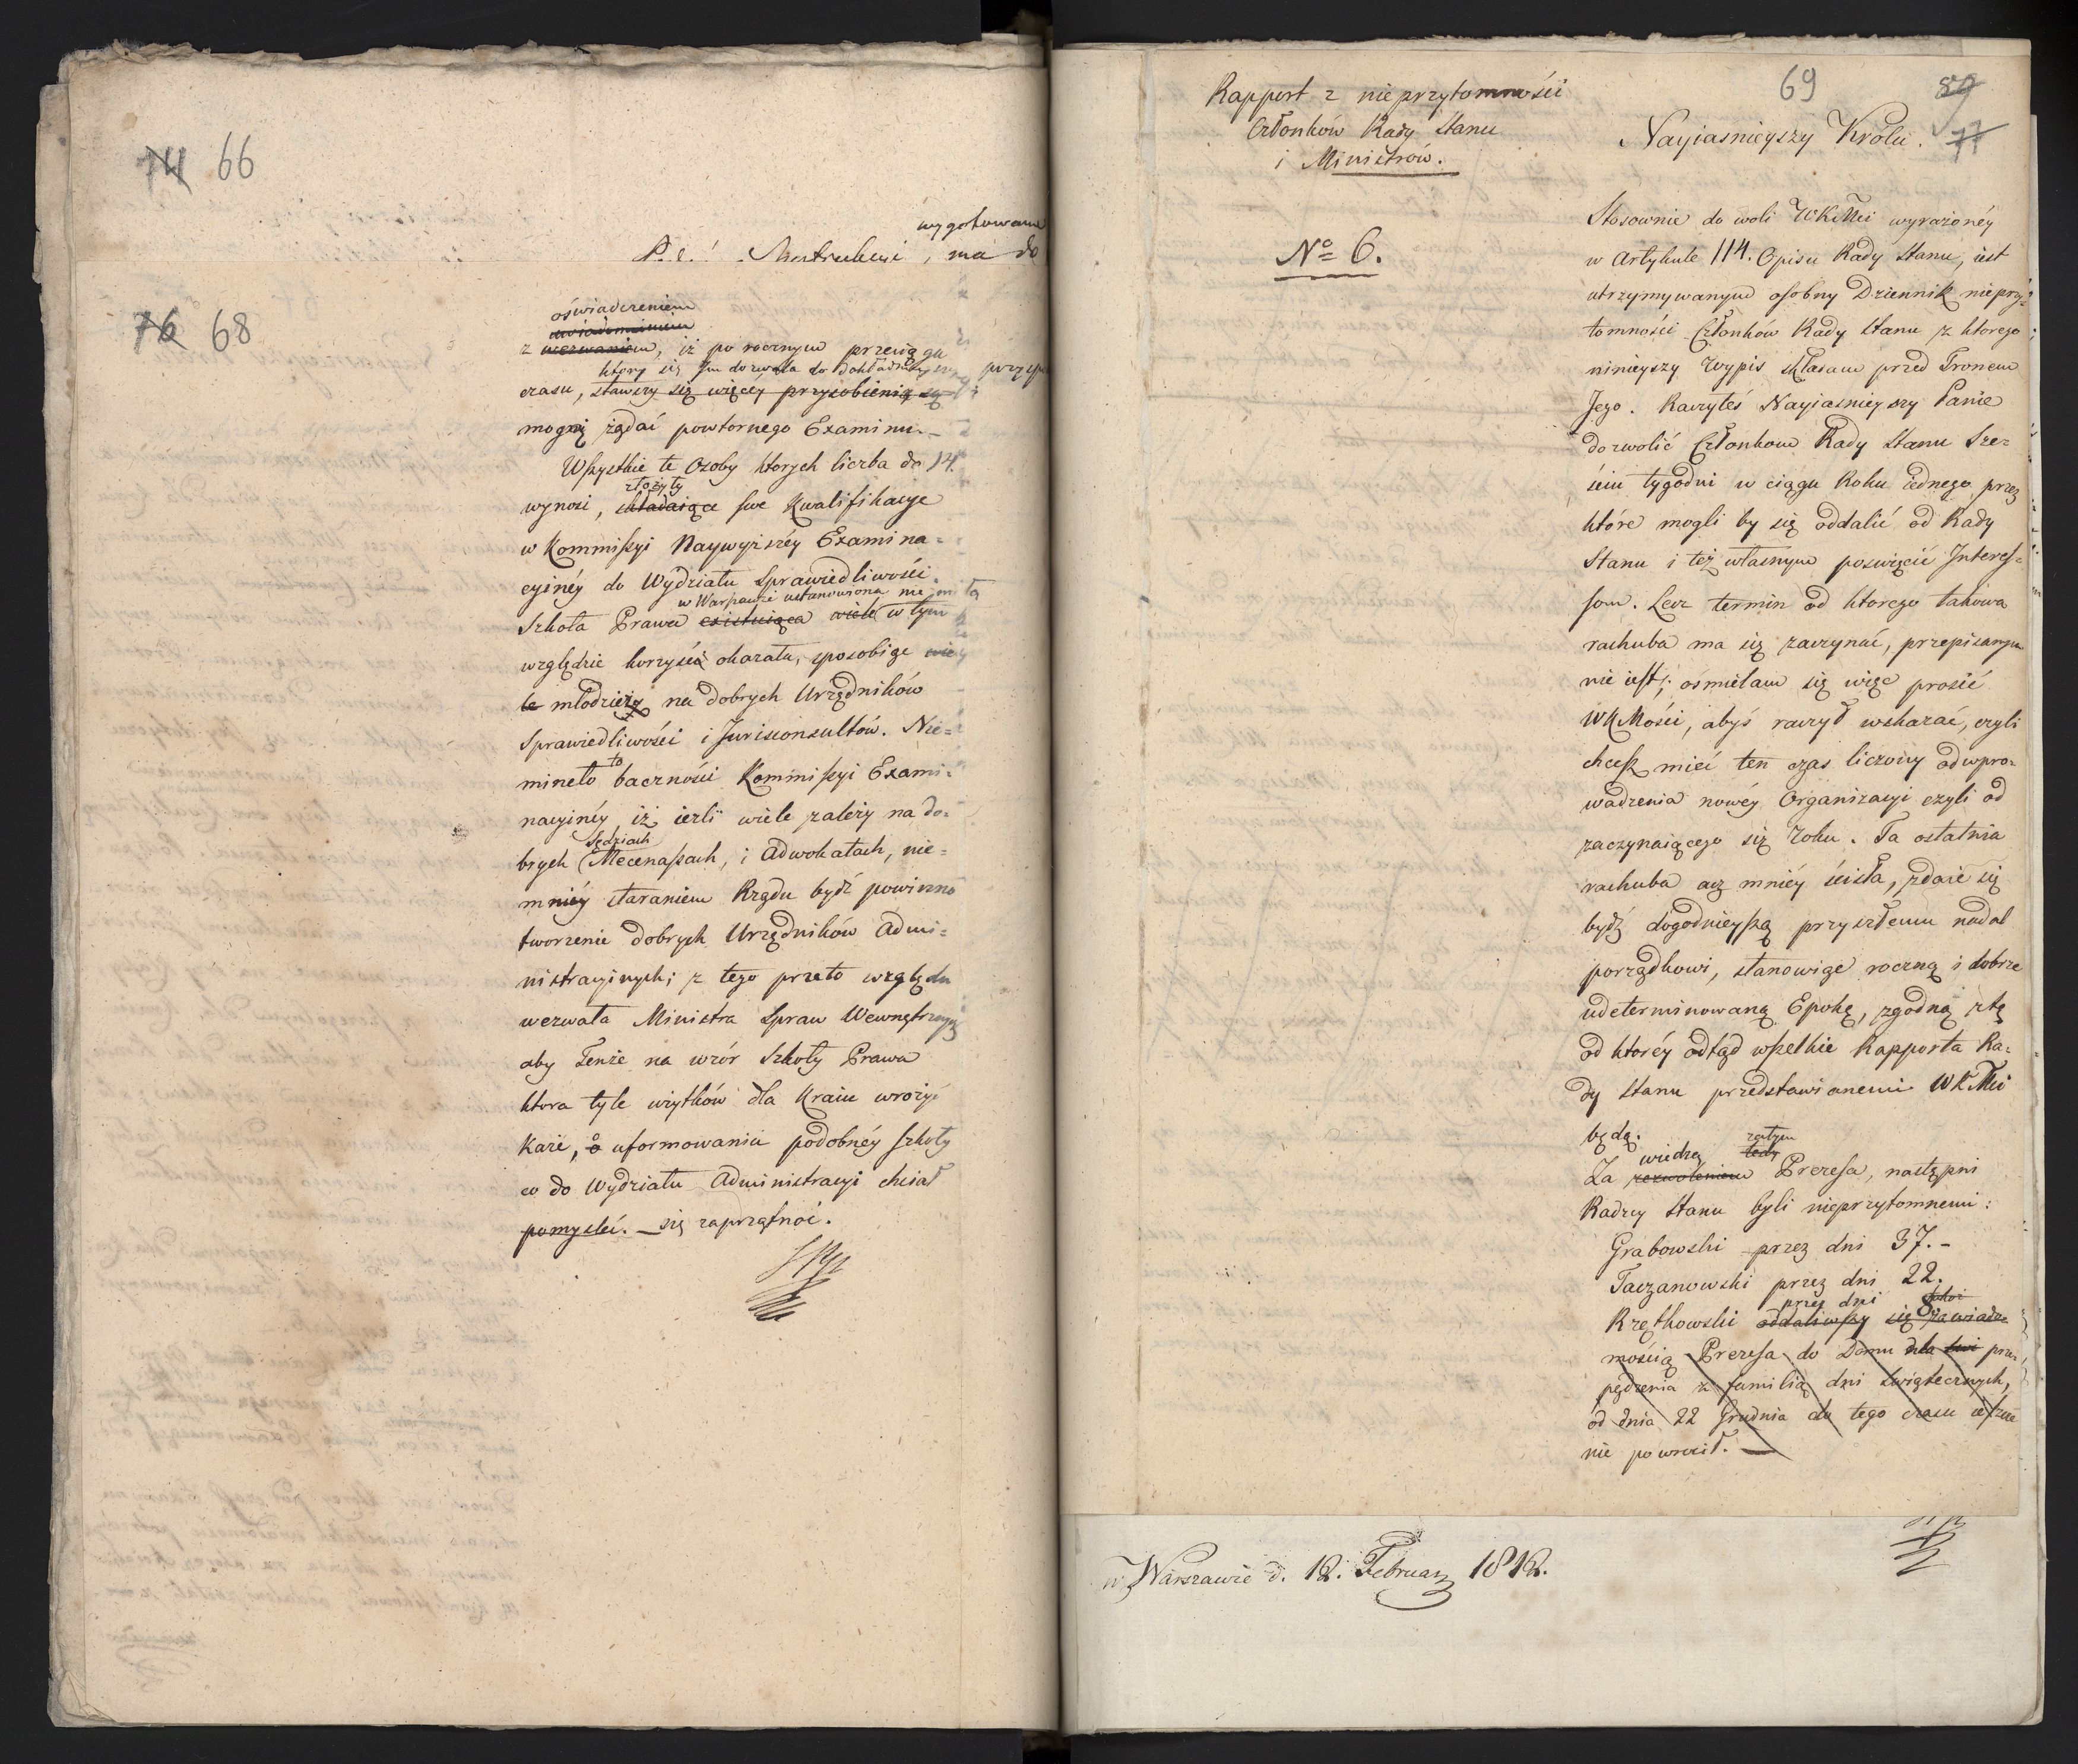 74 66
wygotowane
Instrukcyi, ma do
76 68
oświadczeniem
uwiadomieniem
z wezwaniem, iż po rocznym przeciągu
który się im dozwala do dokładnieyszey
czasu, stawszy się więcey przysobienia się
mogą żądać powtornego Examinu. —
Wszystkie te Osoby ktorych liczba do 14.
złożyły
wynosi, składaiące swe Kwalifikacye
w Kommissyi Naywyższéy Examina=
cyinéy do Wydziału Sprawiedliwości.
w Warszawie ustanowiona nie mała
Szkoła Prawa existuiąca wiele w tym
względzie korzyść okazała, sposobiąc wie
le młodzieży na dobrych Urzędników
Sprawiedliwości i Juriskonsultów. Nie=
to
mineło baczności Kommissyi Exami=
nacyinéy iż ieżli wiele zależy na do=
Sędziach
brych Mecenassach, i Adwokatach, nie=
mniéy staraniem Rządu bydź powinno
tworzenie dobrych Urzędników Admi=
nistracyinych; z tego przeto względu
wezwała Ministra Spraw Wewnętrznych
aby Tenże na wzór Szkoły Prawa
ktora tyle użytków dla Kraiu wrożyć
każe, o uformowaniu podobnéy szkoły
co do Wydziału Administracyi chciał
pomysleć. — się zaprzątnąć.
Rapport z nieprzytomności
Członków Rady Stanu
i Ministrów.
No 6.
69 80
77
Nayiasnieyszy Królu.
Stosownie do woli WKMci wyrażonéy
w Artykule 114. Opisu Rady Stanu, iest
utrzymywanym osobny Dziennik nieprzy=
tomności Członkow Rady Stanu z ktorego
ninieyszy Wypis składam przed Tronem
Jego. Raczyłeś Nayiasnieyszy Panie
dozwolić Członkom Rady Stanu Sze=
ściu tygodni w ciągu Roku iednego przez
które mogli by się oddalić od Rady
Stanu i też własnym poswięcić Interes=
som. Lecz termin od ktorego takowa
rachuba ma się zaczynać, przepisanym
nie iest; ośmielam się więc prosić
WKMości, abyś raczył wskazać, czyli
chcesz mieć ten czas liczony od wpro=
wadzenia nowéy Organizacyi czyli od
zaczynaiącego się Roku. Ta ostatnia
rachuba acz mniéy ścisła, zdaie się
bydź dogodnieyszą przyszłemu nadal
porządkowi, stanowiąc roczną i dobrze
udeterminowaną Epokę, zgodną z tą
od któréy odtąd wszelkie Rapporta Ra=
dy Stanu przedstawionemi WKMci
będą.
wiedzą zatym
Za zezwoleniem tedy Prezesa, następni
Radzcy Stanu byli nieprzytomnemi:
Grabowski przez dni 37. —
Taczanowski przez dni 22.
przez dni 8.
Krzętkowski oddaliwszy się za wiado=
mością Prezesa do Domu dla prze=
pędzenia z familią dni Swiątecznych,
od dnia 22 Grudnia do tego czasu ieszcze
nie powrocił. —
w Warszawie d. 12. Februar 1812.